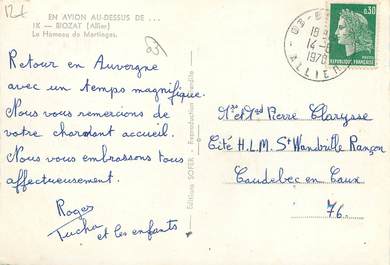 12€
EN AVION AU-DESSUS DE ...
IX — BIOZAT (Allier)
Le Hameau de Martinges.
03
Retour en Auvergne
avec un temps magnifique.
Nous vous remercions de
votre charmant accueil.
Nous vous embrassons tous
affectueusement.
Roger
Tucha et les enfants
Editions SOFER - Reproduction interdite
0,30
REPUBLIQUE FRANÇAISE
18 H
14 -
1970
ALLIER
Mr et Md Pierre Clarysse
Cité H.L.M. St Wandrille Rançon
Caudebec en Caux
76